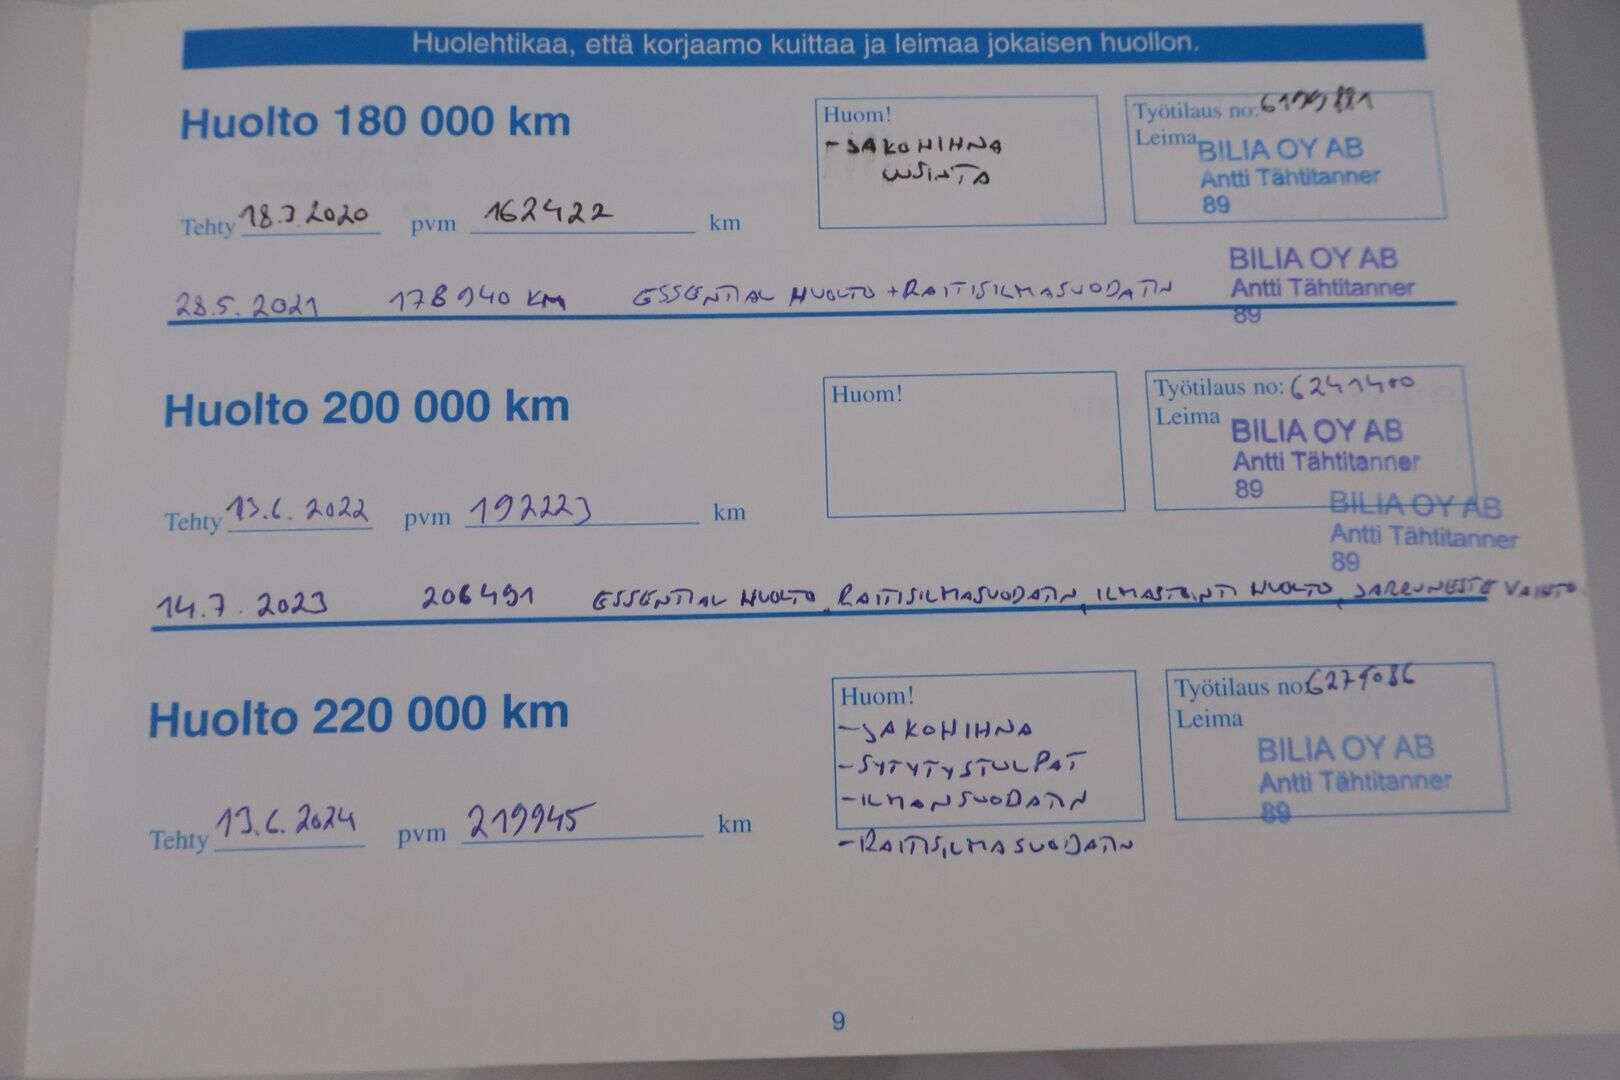 Huolehtikaa, että korjaamo kuittaa ja leimaa jokaisen huollon.
Huolto 180 000 km
Huom!
- JAKOHIHNA
UUSINTA
Työtilaus no:
Leima
BILIA OY AB
Antti Tähtitanner
89
Tehty 18.3.2020 pvm 162422 km
28.5.2021 178940 KM ESSENTIAL HUOLTO + RAITISILMASUODATIN
BILIA OY AB
Antti Tähtitanner
89
Huolto 200 000 km
Huom!
Työtilaus no: 6241400
Leima
BILIA OY AB
Antti Tähtitanner
89
Tehty 13.6.2022 pvm 192223 km
BILIA OY AB
Antti Tähtitanner
89
14.7.2023 206491 ESSENTIAL HUOLTO, RAITISILMASUODATIN, ILMASTOINTI HUOLTO, JARRUNESTE VAIHTO
Huolto 220 000 km
Huom!
- JAKOHIHNA
- SYTYTYSTULPAT
- ILMANSUODATIN
- RAITISILMASUODATIN
Työtilaus no:
Leima
BILIA OY AB
Antti Tähtitanner
89
Tehty 13.6.2024 pvm 219945 km
9